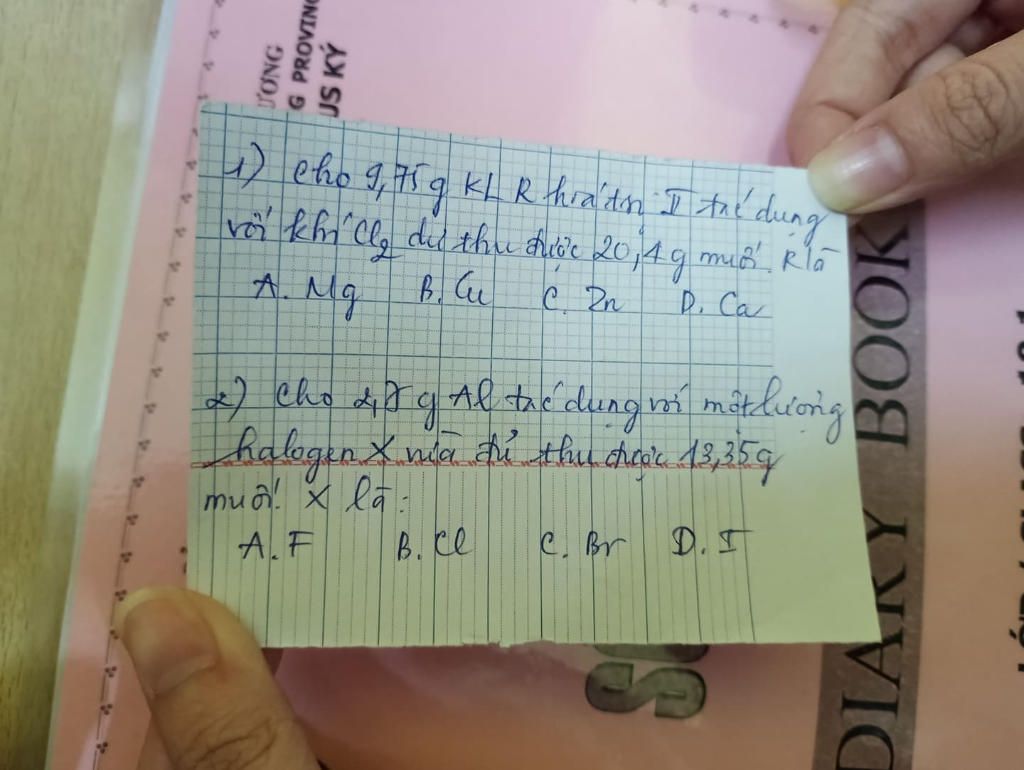 ƯƠNG
G PROVING
US KÝ
1) Cho 9,75g KL R hóa trị II tác dụng
với khí Cl₂ dư thu được 20,4g muối. R là
A. Mg B. Cu C. Zn D. Ca
2) Cho 2,7g Al tác dụng với một lượng
halogen X vừa đủ thu được 13,35g
muối. X là:
A. F B. Cl C. Br D. I
DIARY BOOK